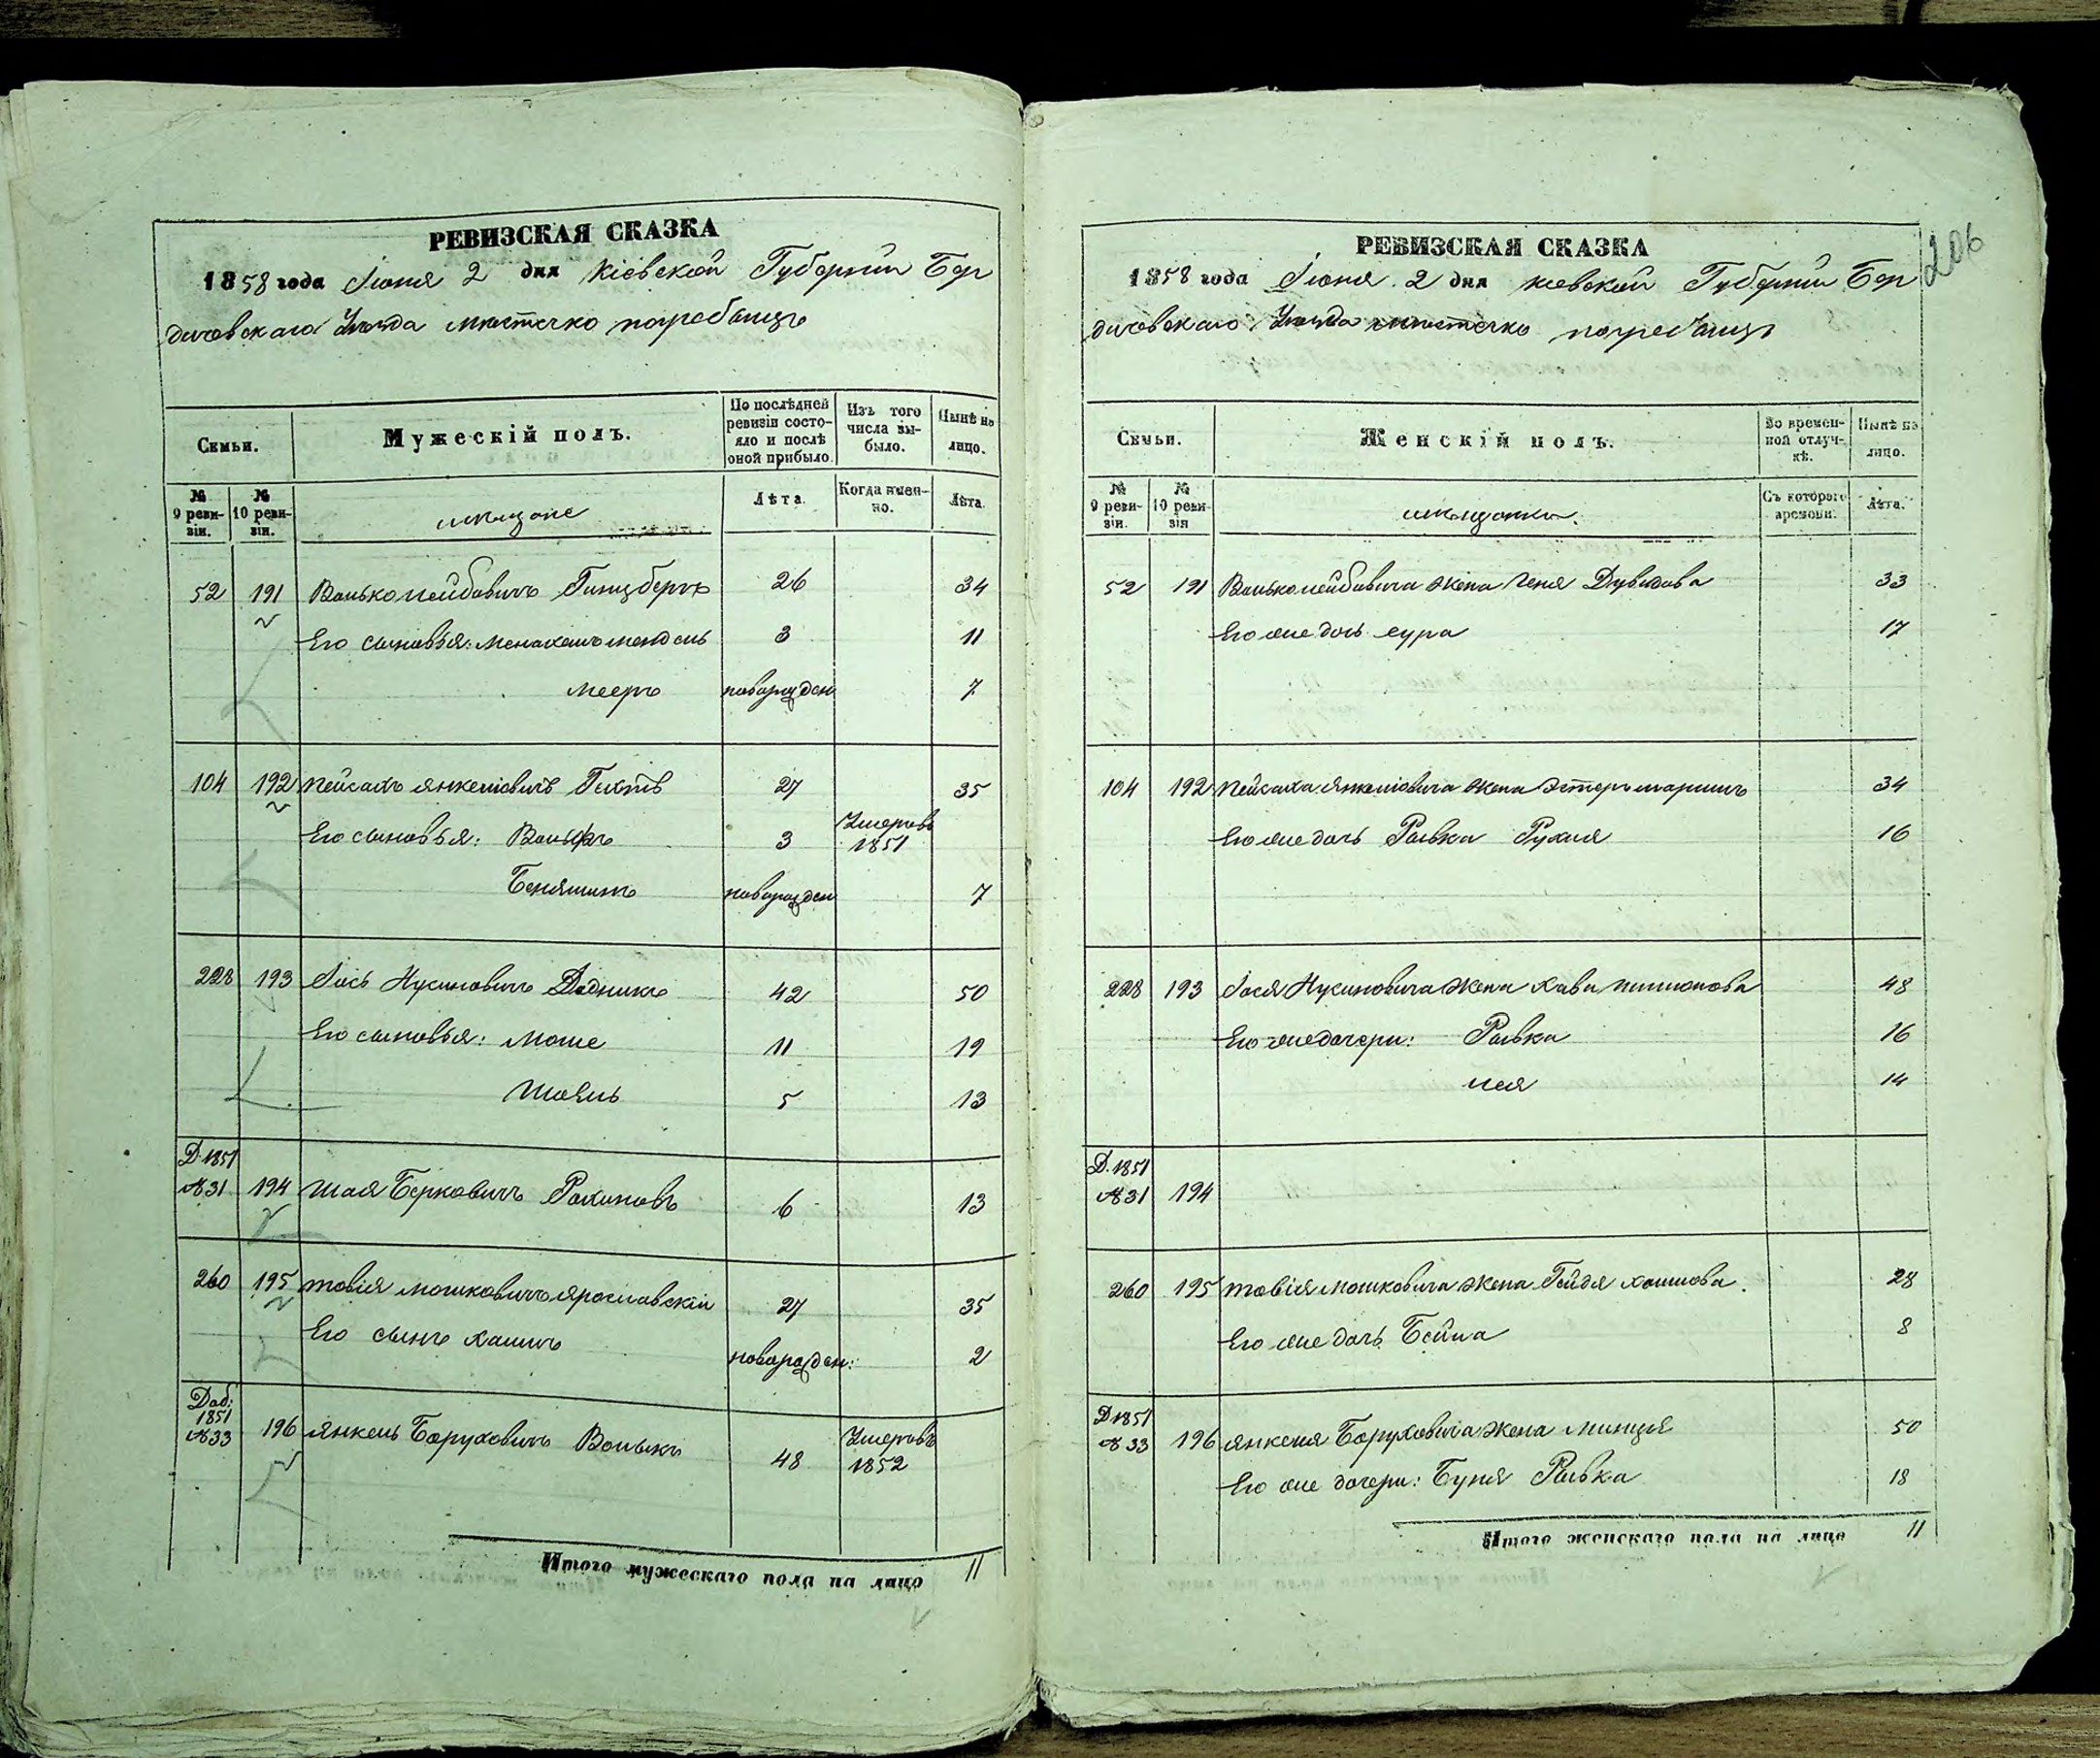 РЕВИЗСКАЯ СКАЗКА
1858 года Іюня 2 дня Кіевской Губерніи Бер
дичовскаго Уезда мѣстечко погребищъ
Семьи.
Мужескій полъ.
По послѣдней ревизіи состояло и послѣ оной прибыло.
Изъ того числа выбыло.
Нынѣ на лицо.
№ 9 ревизіи.
№ 10 ревизіи.
мѣщане
Лѣта
Когда именно.
Лѣта.
52 191 Волько лейбовичъ Гинцбергъ 26 34
Его сыновья: Менахемъ мендель 3 11
Мееръ новорожден 7
104 192 Пейсахъ Янкеліовичъ 27 35
Его сыновья: Вольфъ 3 Умеръ въ 1851
Беняминъ новорожден 7
228 193 Іось Нусиновичъ 42 50
Его сыновья: Моше 11 19
Шоель 5 13
Д. 1851
№ 31 194 Шая Берковичъ 6 13
260 195 Товія мошковичъ ярославскій 27 35
Его сынъ хаимъ новорожден: 2
Доб: 1851
№ 33 196 Янкель Боруховичъ 48 Умеръ въ 1852
Итого мужескаго пола на лицо 11
206
РЕВИЗСКАЯ СКАЗКА
1858 года Іюня 2 дня кіевской Губерніи Бер
дичовскаго Уезда мѣстечко погребищъ
Семьи.
Женскій полъ.
Во временной отлучкѣ.
Нынѣ на лицо.
№ 9 ревизіи.
№ 10 ревизія
мѣщанки.
Съ котораго времени.
Лѣта.
52 191 Волько лейбовича жена Геня Дувидова 33
Его же дочь сура 17
104 192 Пейсаха Янкеліовича жена Эстеръ 34
Его же дочь Ривка Рухля 16
228 193 Іося Нусиновича жена Хава 48
Его же дочери: Ривка 16
лея 14
Д. 1851
№ 31 194
260 195 Товія мошковича жена Гейдя хаимова. 28
Его же дочь Бейла 8
Д 1851
№ 33 196 янкеля Боруховича жена минця 50
Его же дочери: Буня Ривка 18
Итого женскаго пола на лицо 11